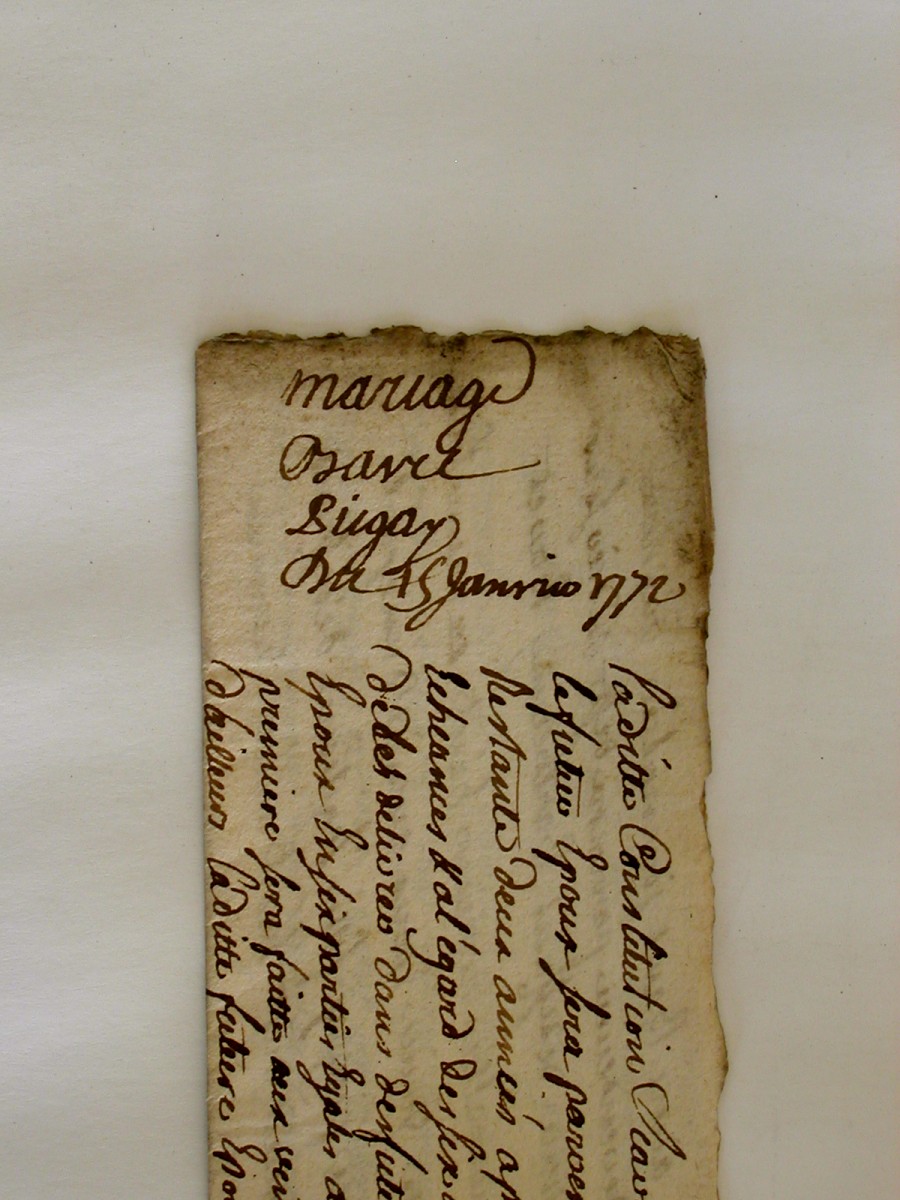 mariage
Barre
Pugar
Du 15 Janvier 1772
laditte Constitution
le futur Epour sera
Restante deux années
Echeances & al'égard des six
d'elles delivrer dans des
Epoux En six parties Egales
premiere sera faitte aux
d'ailleurs laditte future